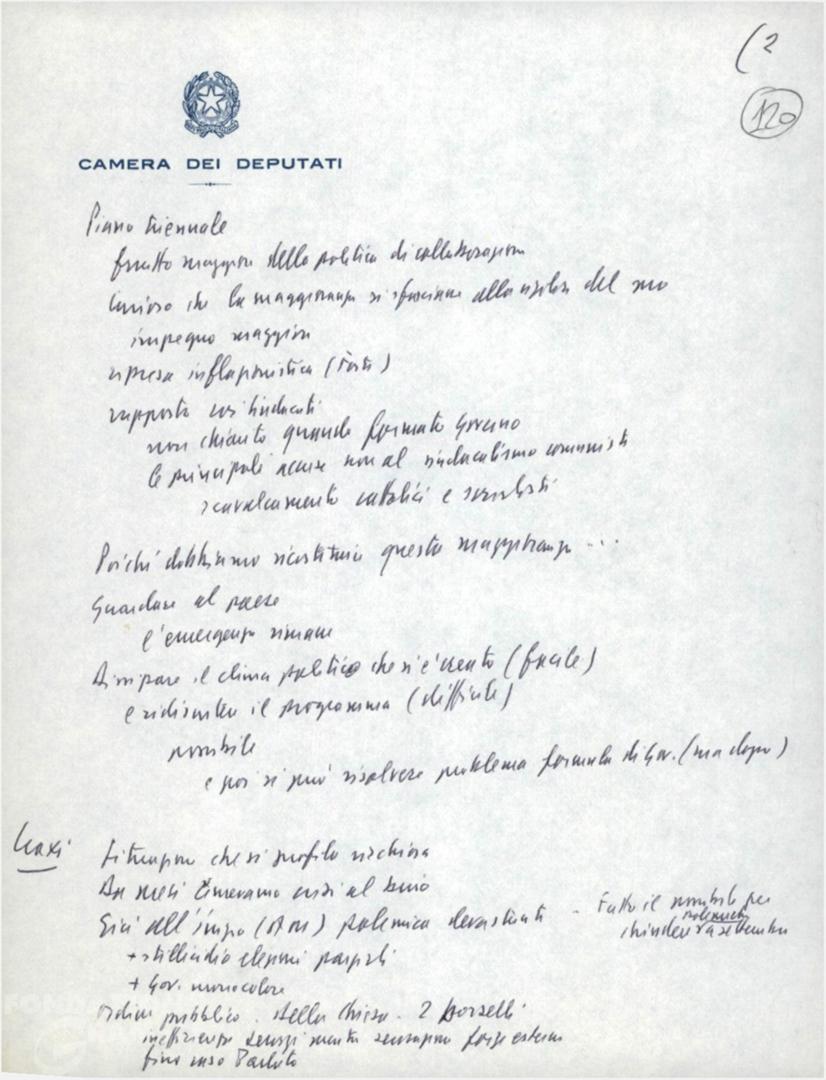 (2
120
CAMERA DEI DEPUTATI
Piano triennale
frutto maggiore della politica di collaborazione
curioso che la maggioranza si sfasciasse alla vigilia del suo
impegno maggiore
ripresa inflazionistica
rapporto coi sindacati
non chiarito quando formato Governo
le principali accuse non al sindacalismo comunisti
scavalcamento cattolici e socialisti
Poiché dobbiamo ricostituire questa maggioranza ...
Guardare al paese
l'emergenza rimane
Dissipare il clima politico che si è creato (facile)
e ridiscutere il programma (difficile)
possibile
e poi si può risolvere problema formula di Gov. (ma dopo)
Craxi
Situazione che si profila rischiosa
Da mesi temevamo crisi al buio
Già all'inizio polemica devastanti - Fatto il possibile per
chiudere polemiche a settembre
+ stillicidio elezioni parziali
+ Gov. monocolore
Ordine pubblico - Dalla Chiesa - 2 borselli
inefficienza servizi sensazione forze esterne
fino caso